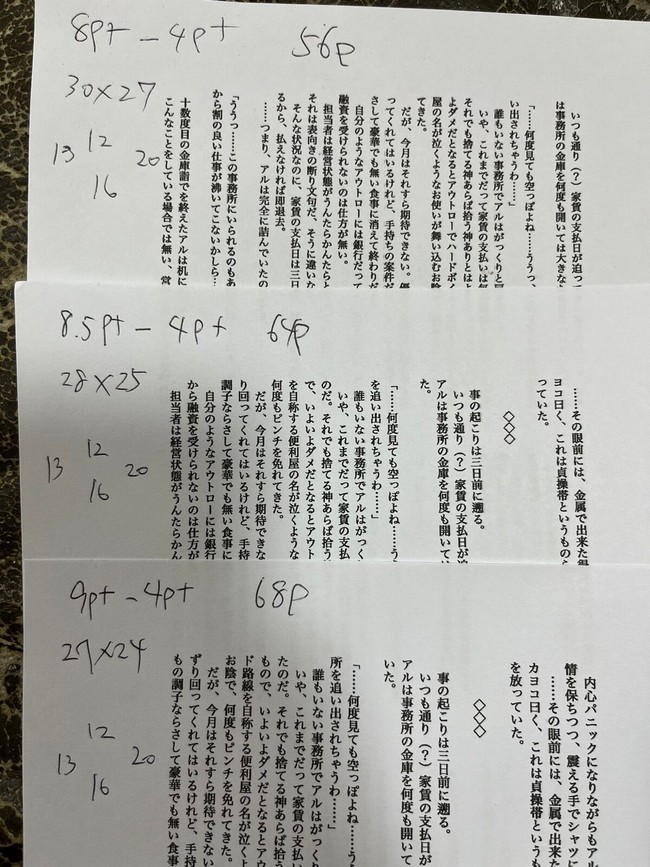 8pt – 4pt 56p
30×27
12
13 20
16
いつも通り(?)家賃の支払日が迫って
は事務所の金庫を何度も開いては大きな
「……何度見ても空っぽよね……ううっ、
い出されちゃうわ……」
誰もいない事務所でアルはがっくりと
いや、これまでだって家賃の支払いは何
それでも捨てる神あらば拾う神ありとはよ
よダメだとなるとアウトローでハードボイ
屋の名が泣くようなお使いが舞い込むお陰
てきた。
だが、今月はそれすら期待できない。便
ってくれてはいるけれど、手持ちの案件だ
さして豪華でも無い食事に消えて終わりだ
自分のようなアウトローには銀行だって
融資を受けられないのは仕方が無い。
担当者は経営状態がうんたらかんたらと
それは表向きの断り文句だ、そうに違いな
そんな状況なのに、家賃の支払日は三日
るから、払えなければ即退去。
……つまり、アルは完全に詰んでいたの
「ううっ……この事務所にいられるのもあ
から割の良い仕事が沸いてこないかしら…
十数度目の金庫詣でを終えたアルは机に
こんなことをしている場合では無い、営
8.5pt – 4pt 64p
28×25
12
13 20
16
……その眼前には、金属で出来た銀
ヨコ曰く、これは貞操帯というものら
っていた。
◇◇◇
事の起こりは三日前に遡る。
いつも通り(?)家賃の支払日が迫
アルは事務所の金庫を何度も開いては
た。
「……何度見ても空っぽよね……う
を追い出されちゃうわ……」
誰もいない事務所でアルはがっく
いや、これまでだって家賃の支払
のだ。それでも捨てる神あらば拾う
で、いよいよダメだとなるとアウト
を自称する便利屋の名が泣くような
何度もピンチを免れてきた。
だが、今月はそれすら期待できな
り回ってくれてはいるけれど、手持
調子ならさして豪華でも無い食事に
自分のようなアウトローには銀行
から融資を受けられないのは仕方が
担当者は経営状態がうんたらかん
9pt – 4pt 68p
27×24
12
13 20
16
内心パニックになりながらもア
情を保ちつつ、震える手でシャツ
……その眼前には、金属で出来た
カヨコ曰く、これは貞操帯というも
を放っていた。
◇◇◇
事の起こりは三日前に遡る。
いつも通り(?)家賃の支払日が
アルは事務所の金庫を何度も開いて
いた。
「……何度見ても空っぽよね……う
所を追い出されちゃうわ……」
誰もいない事務所でアルはがっく
いや、これまでだって家賃の支払
たのだ。それでも捨てる神あらば拾
もので、いよいよダメだとなるとアウ
ド路線を自称する便利屋の名が泣くよ
お陰で、何度もピンチを免れてきた。
だが、今月はそれすら期待できない
ずり回ってくれてはいるけれど、手持
もの調子ならさして豪華でも無い食事